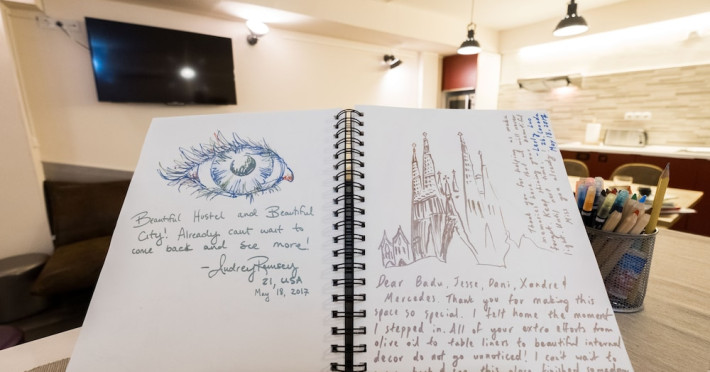 Beautiful Hostel and Beautiful
City! Already can't wait to
come back and see more!
- Audrey Ramsey
21, USA
May 18, 2017
Dear Badu, Jesse, Dani, Xandre &
Mercedes. Thank you for making this
space so special. I felt home the moment
I stepped in. All of your extra efforts from
olive oil to table liners to beautiful internal
decor do not go unnoticed! I can't wait to
this place finished someday